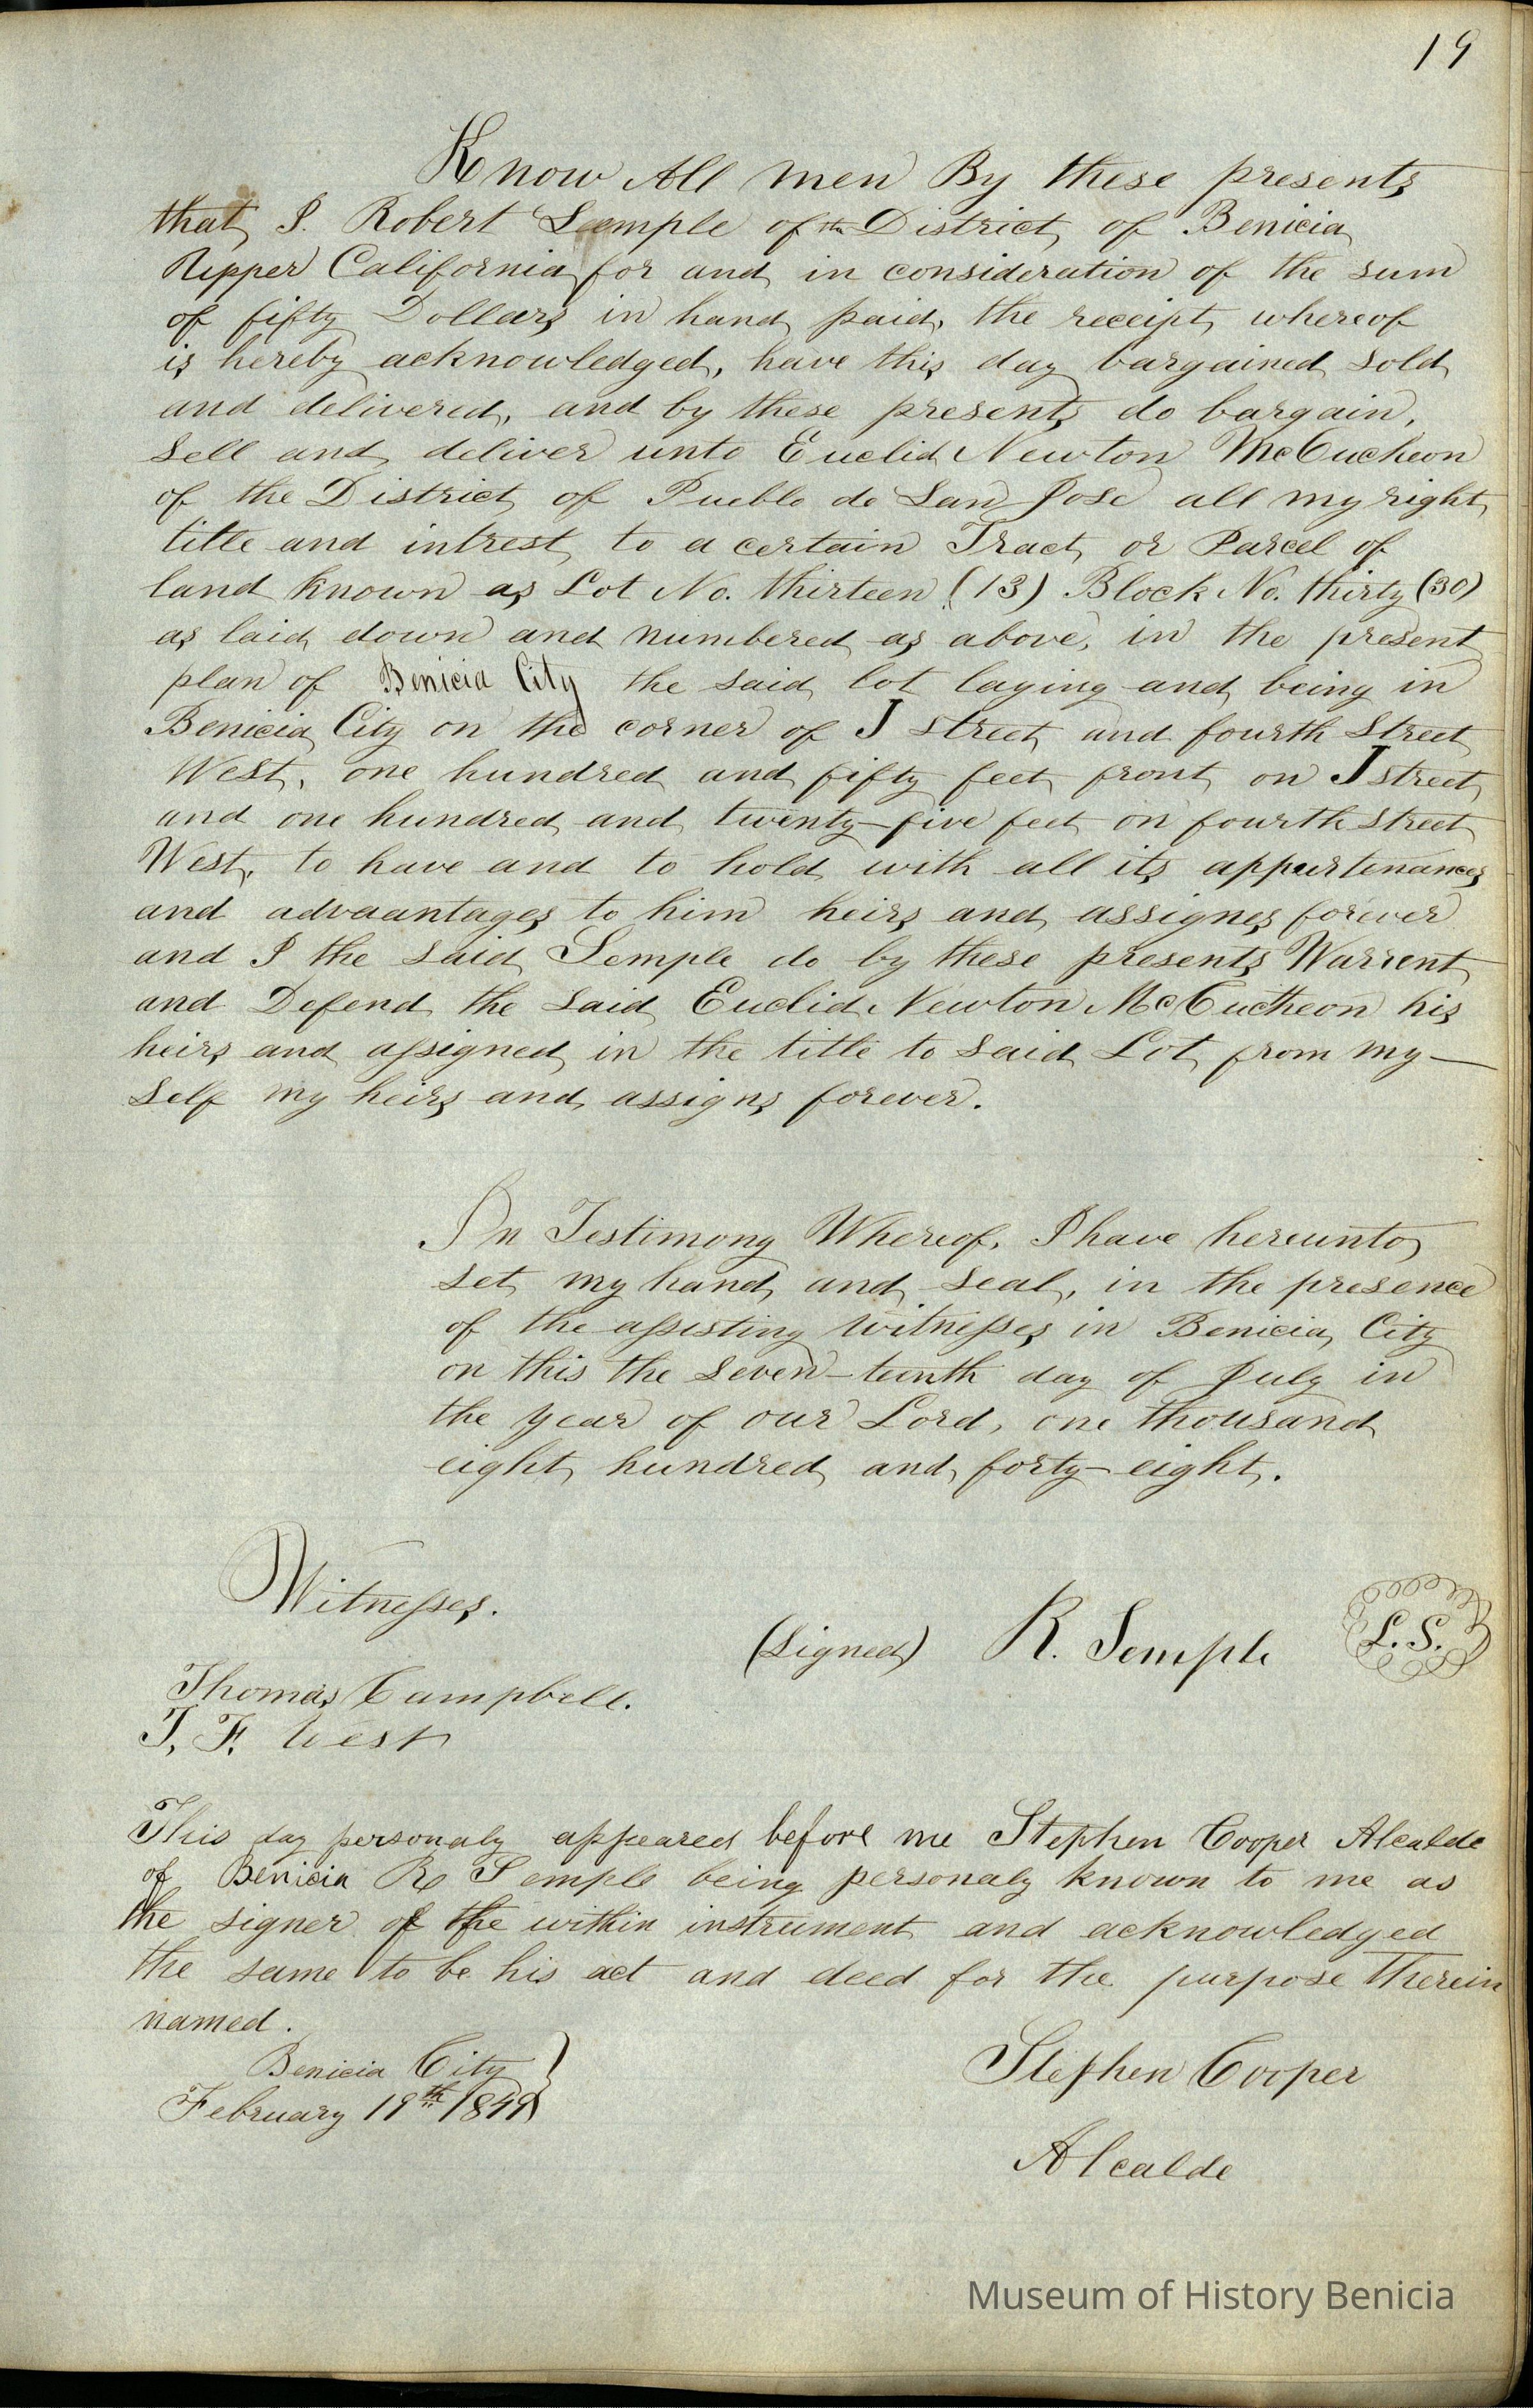 19
Know All men By these presents
that I. Robert Semple of the District of Benicia
Upper California for and in consideration of the sum
of fifty Dollars in hand paid, the receipt whereof
is hereby acknowledged, have this day bargained sold
and delivered, and by these presents do bargain,
sell and deliver unto Euclid Newton McCucheon
of the District of Pueblo de San Jose all my right
title and intrest to a certain Tract or Parcel of
land known as Lot No. thirteen (13) Block No. thirty (30)
as laid down and numbered as above, in the present
plan of Benicia City the said lot laying and being in
Benicia City on the corner of J street and fourth Street
West, one hundred and fifty feet front on J street
and one hundred and twenty-five feet on fourth street
West, to have and to hold with all its appurtenances
and advaantages to him heirs and assignes forever
and I the said Semple do by these presents Warrent
and Defend the said Euclid Newton McCutheon his
heirs and assigned in the title to said Lot from my-
self my heirs and assigns forever.
In Testimony Whereof, I have hereunto
set my hand and seal, in the presence
of the assisting witnesses in Benicia City
on this the seven-teenth day of July in
the year of our Lord, one thousand
eight hundred and forty-eight.
Witnesses.
(signed) R. Semple L.S.
Thomas Campbell.
T. F. West
This day personaly appeared before me Stephen Cooper Alcalde
of Benicia R Semple being personaly known to me as
the signer of the within instrument and acknowledged
the same to be his act and deed for the purpose Therein
named.
Benicia City }
February 19th 1849
Stephen Cooper
Alcalde
Museum of History Benicia